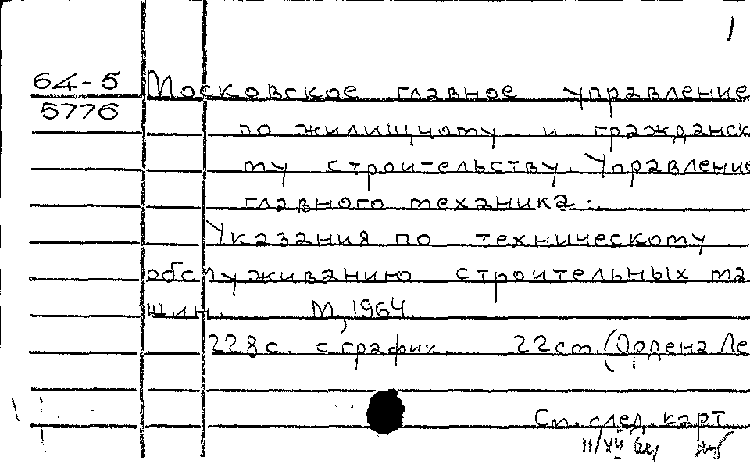 1
64-5 Московское главное управление
5776
по жилищному и гражданск
му строительству. Управление
главного механика.
Указания по техническому
обслуживанию строительных ма
шин. М, 1964
228 с. с график. 22 см. (Ордена Ле
См. след. карт
11/XII 64